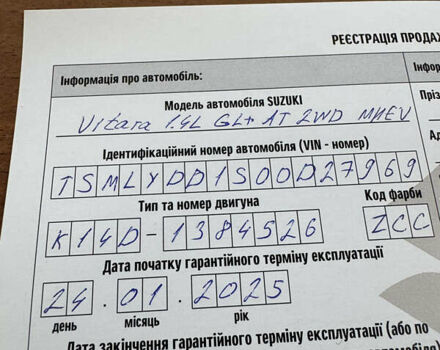 РЕЄСТРАЦІЯ ПРОДА
Інформація про автомобіль:
Інфор
Модель автомобіля SUZUKI
Vitara 1.4L GL+ AT 2WD MHEV
Ідентифікаційний номер автомобіля (VIN - номер)
TSMLYDD1S00D27969
Тип та номер двигуна
Код фарби
K14D-1384526
ZCC
Дата початку гарантійного терміну експлуатації
24.01.2025
день місяць рік
Дата закінчення гарантійного терміну експлуатації (або по